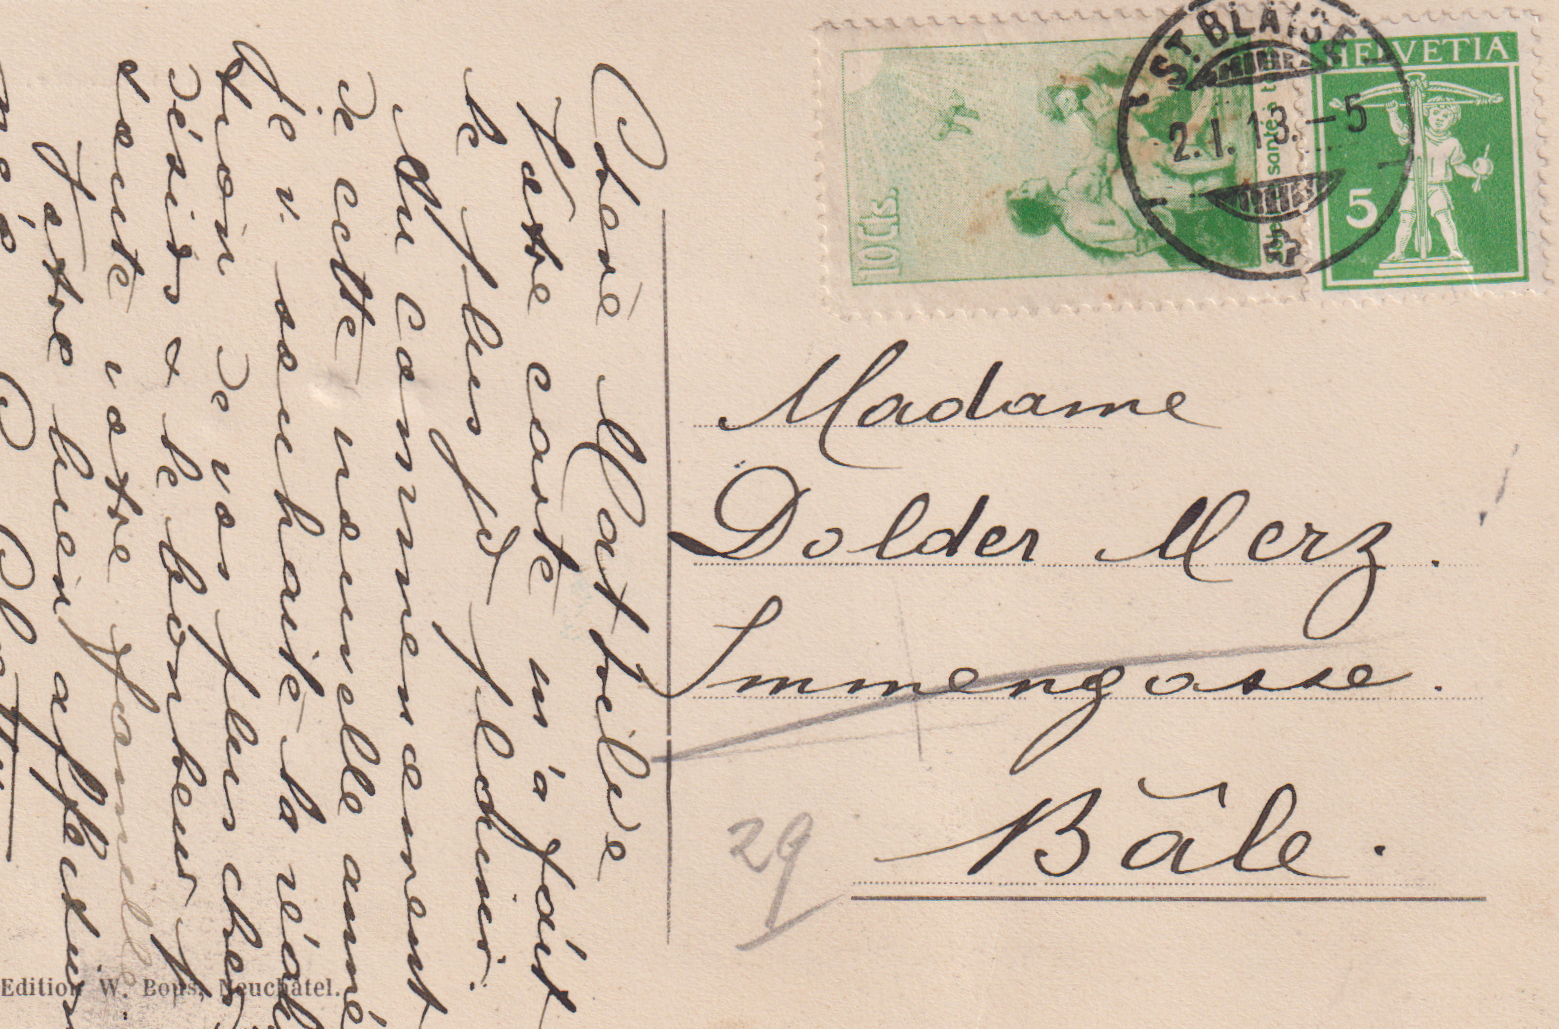 Chère Mathilde
Votre carte m'a fait
le plus gd plaisir.
Au commencement
de cette nouvelle anné
Je v. souhaite la réal
tion de vos plus cher
désirs & le bonheur p
toute votre famille
Votre bien affectio
10 Cts.
santé
ST. BLAISE
2.I.13.-5
HELVETIA
5
Madame
Dolder Merz.
Immengasse.
Bâle.
29
Edition W. Bous, Neuchâtel.